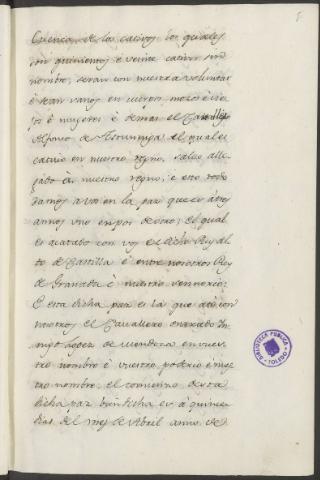 Cuenca, de los cativos los quales
son quinientos é veinte cativos sin
nombre, seran con nuestra voluntad
é sean sanos en cuerpos mozos é
é mugeres é demas el Cavallero
Alfonso de Astunniga el qual es
cativo en nuestro regno, salvo alle-
gado à nuestro regno; e esto todo
damos a vos en la paz que es à tres
annos uno en pos de otro; el qual
es acatado con vos el dicho Rey al-
to de Castilla é entre nosotros Rey
de Granada é nuestro sennorio:
E esta dicha paz es la que ató con
nosotros el Cavallero enviado In-
nigo Lopez de Mendoza en vues-
tro nombre é vuestro poderio é nues-
tro nombre, el comienzo desta
dicha paz bendicha es à quince
dias del mes de Abril anno de
BIBLIOTECA PUBLICA
TOLEDO